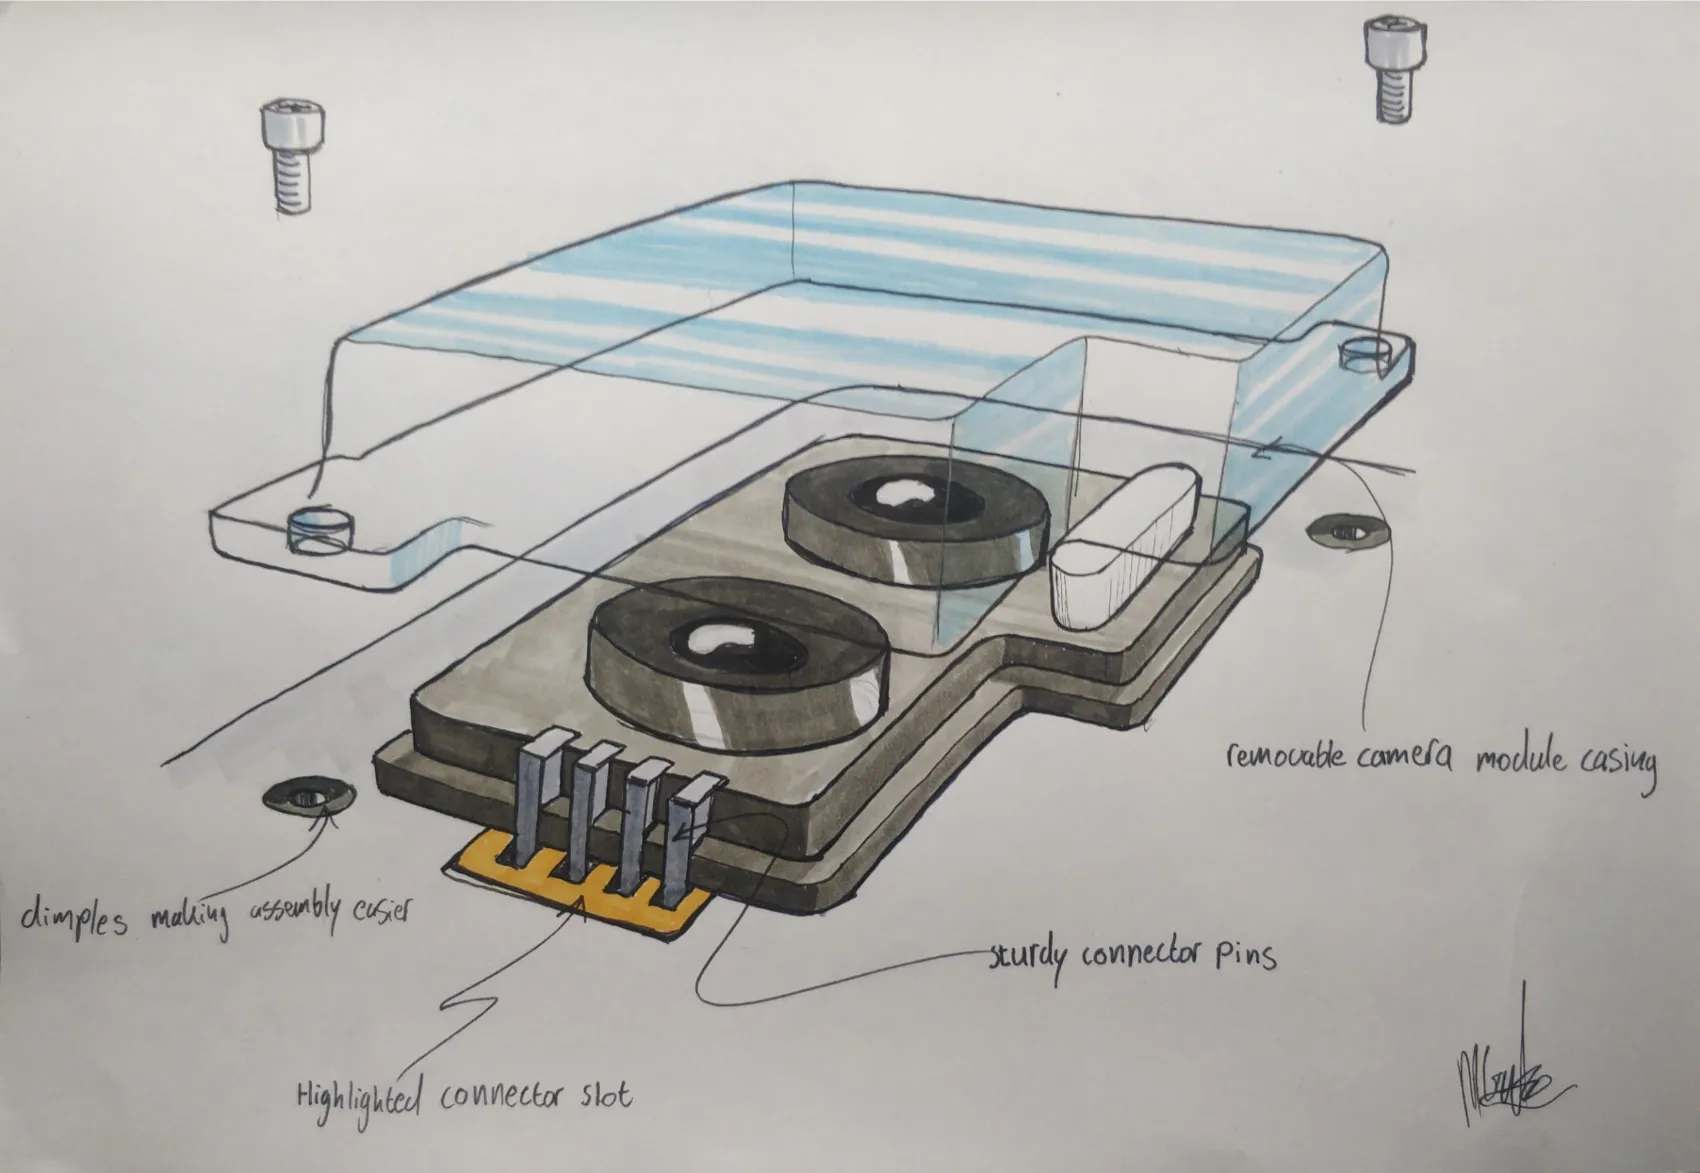 removable camera module casing
dimples making assembly easier
sturdy connector pins
Highlighted connector slot